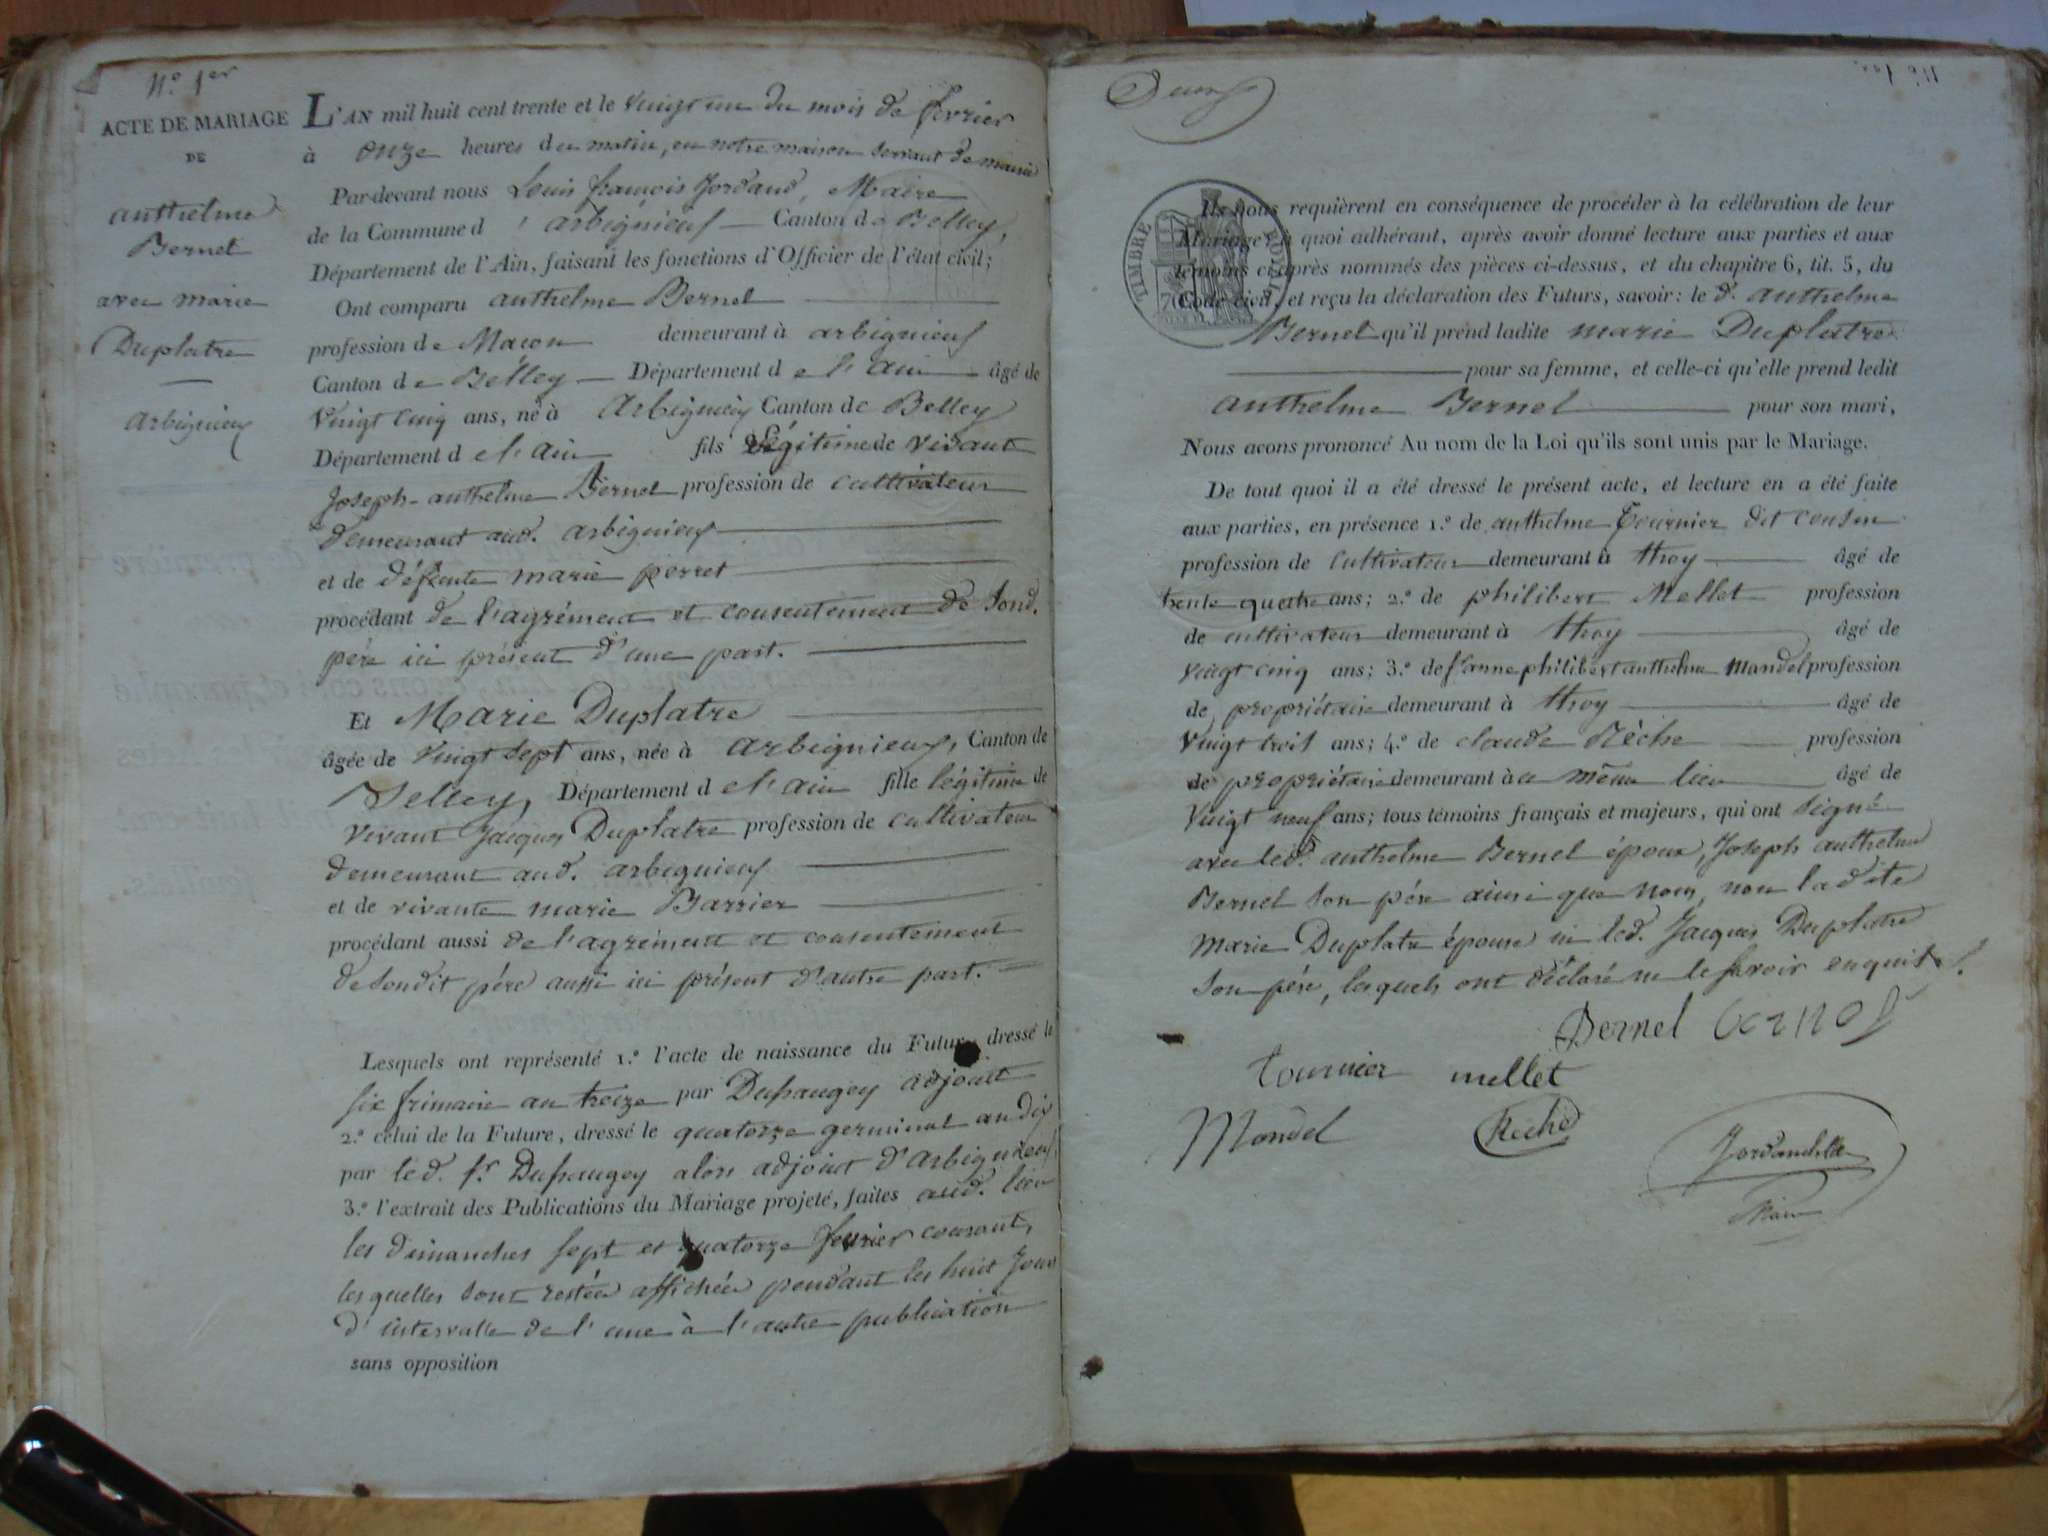 N.° 1er
ACTE DE MARIAGE
DE
anthelme
Bernel
avec marie
Duplatre
arbignieux
L'AN mil huit cent trente et le vingt un du mois de fevrier
à onze heures du matin, en notre maison servant de mairie
Par-devant nous Louis françois Jordand, Maire
de la Commune d'arbignieux Canton de Belley,
Département de l'Ain, faisant les fonctions d'Officier de l'état civil;
Ont comparu anthelme Bernel
profession de Macon demeurant à arbignieux
Canton de Belley Département de l'ain âgé de
vingt cinq ans, né à Arbignieux Canton de Belley
Département de l'ain fils légitime de vivant
Joseph-anthelme Bernel profession de cultivateur
demeurant aud. arbignieux
et de défunte marie perret
procédant de l'agrément et consentement de sond.
père ici présent d'une part.
Et Marie Duplatre
âgée de vingt sept ans, née à arbignieux, Canton de
Belley, Département de l'ain fille légitime de
vivant Jacques Duplatre profession de cultivateur
demeurant aud. arbignieux
et de vivante marie Barrier
procédant aussi de l'agrément et consentement
de sondit père aussi ici présent d'autre part.
Lesquels ont représenté 1.° l'acte de naissance du Futur, dressé le
six frimaire an treize par Dupaugey adjoint
2.° celui de la Future, dressé le quatorze germinal an dix
par led. sr. Dupaugey alors adjoint d'arbignieux,
3.° l'extrait des Publications du Mariage projeté, faites aud. lieu
les dimanches sept et quatorze fevrier courant,
lesquelles sont restées affichées pendant les huit jours
d'intervalle de l'une à l'autre publication
sans opposition
Deux
TIMBRE ROYAL
70
Ils nous requièrent en conséquence de procéder à la célébration de leur
Mariage; à quoi adhérant, après avoir donné lecture aux parties et aux
témoins ci-après nommés des pièces ci-dessus, et du chapitre 6, tit. 5, du
Code civil, et reçu la déclaration des Futurs, savoir: le d. anthelme
Bernel qu'il prend ladite marie Duplatre
pour sa femme, et celle-ci qu'elle prend ledit
anthelme Bernel pour son mari,
Nous avons prononcé Au nom de la Loi qu'ils sont unis par le Mariage.
De tout quoi il a été dressé le présent acte, et lecture en a été faite
aux parties, en présence 1.° de anthelme Tournier dit cousin
profession de cultivateur demeurant à thoy âgé de
trente quatre ans; 2.° de philibert Mellet profession
de cultivateur demeurant à thoy âgé de
vingt cinq ans; 3.° de philibert anthelme Mondel profession
de propriétaire demeurant à thoy âgé de
vingt trois ans; 4.° de claude Rèche profession
de propriétaire demeurant à ce même lieu âgé de
vingt neuf ans; tous témoins français et majeurs, qui ont signé
avec led. anthelme Bernel époux, Joseph anthelme
Bernel son père ainsi que nous, non ladite
marie Duplatre épouse ni led. Jacques Duplatre
son père, lesquels ont déclaré ne le savoir enquis.
Bernel
Tournier mellet
Mondel Reche
Maire